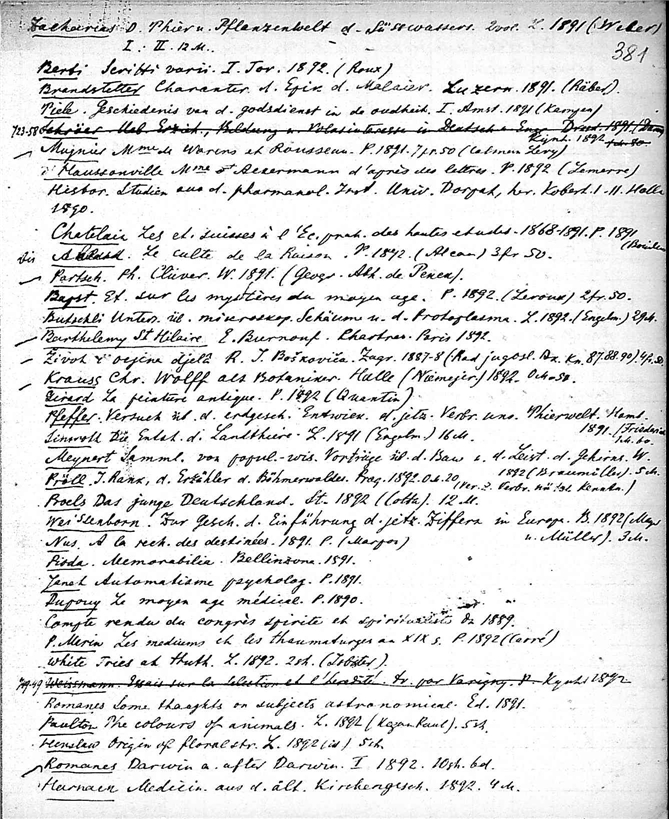 Zacharias D. Thier u. Pflanzenwelt d. Süsswassers. 2 vol. L. 1891 (Weber)
I. - II. 12 M.
381
Berti Scritti varii. I. Tor. 1892. (Roux)
Brandstetter Charakter. d. Epik d. Malaier. Luzern. 1891. (Räber).
Tiele. Geschiedenis van d. godsdienst in de oudheid. I. Amst. 1891 (Kampen)
723-58 Ueb. Erzieh., Bildung u. Volksinteresse in Deutschl. u. Engl. Dresd. 1891.
Mugnier Mme de Warens et Rousseau. P. 1891. 7 fr. 50 (Calman Levy)
d'Haussonville Mme Ackermann d'après des lettres. P. 1892 (Lemerre)
Histor. Studien aus d. pharmakol. Inst. Univ. Dorpat, hr. Kobert. I-II. Halle
1890.
Chatelain Les et. suisses à l'Ec. prat. des hautes etudes. 1868-1891. P. 1891
Aulard. Le culte de la Raison. P. 1892. (Alcan) 3 fr. 50.
Partsch. Ph. Clüver. W. 1891. (Geogr. Abh. de Penck).
Et. sur les mystères du moyen age. P. 1892. (Leroux) 2 fr. 50.
Bütschli Unters. üb. mikroskop. Schäume u. d. Protoplasma. L. 1892. (Engelm.) 24 M.
Barthelemy St Hilaire E. Burnouf. Chartres. Paris 1892.
Život i ocjena djela R. J. Boškovića. Zagr. 1887-8 (Rad jugosl. Ak. Kn. 87. 88. 90) 4 fl. 50.
Krauss Chr. Wolff als Botaniker. Halle (Niemejer) 1892. 0 M. 50.
Girard La peinture antique. P. 1892 (Quantin)
Pfeffer. Versuch üb. d. erdgesch. Entwick. d. jetz. Verbr. uns. Thierwelt. Hamb.
1891. (Friederich
1 M. 60.
Simroth Die Entst. d. Landthiere. L. 1891 (Engelm.) 16 M.
Meynert Samml. von popul.-wis. Vorträge üb. d. Bau u. d. Leist. d. Gehirns. W.
1892 (Braumüller). 5 M.
Pröll J. Rank, d. Erzähler d. Böhmerwaldes. Prag. 1892. 0 fl. 20
Proels Das junge Deutschland. St. 1892 (Cotta). 12 M.
Weissenborn. Zur Gesch. d. Einführung d. jetz. Ziffern in Europa. B. 1892 (Mayer
u. Müller). 3 M.
Nus. A la rech. des destinées. 1891. P. (Marpon)
Pioda. Memorabilia. Bellinzona. 1891.
Janet Automatisme psycholog. P. 1891.
Dupouy Le moyen age médical. P. 1890.
Compte rendu du congrès spirite et spiritualiste de 1889.
P. Merin Les mediums et les thaumaturges au XIX s. P. 1892 (Carré)
White Tries at truth. L. 1892. 2 sh. (Isbster).
79-49 Weissmann. Essais sur la selection et l'heredité. Tr. par Varigny. P. 1892
Romanes Some thoughts on subjects astronomical. Ed. 1891.
Poulton The colours of animals. L. 1892 (Kegan Paul). 5 sh.
Henslow Origin of floral str. L. 1892 (id) 5 sh.
Romanes Darwin a. after Darwin. I 1892. 10 sh. 6 d.
Harnack Medicin. aus d. ält. Kirchengesch. 1892. 4 M.